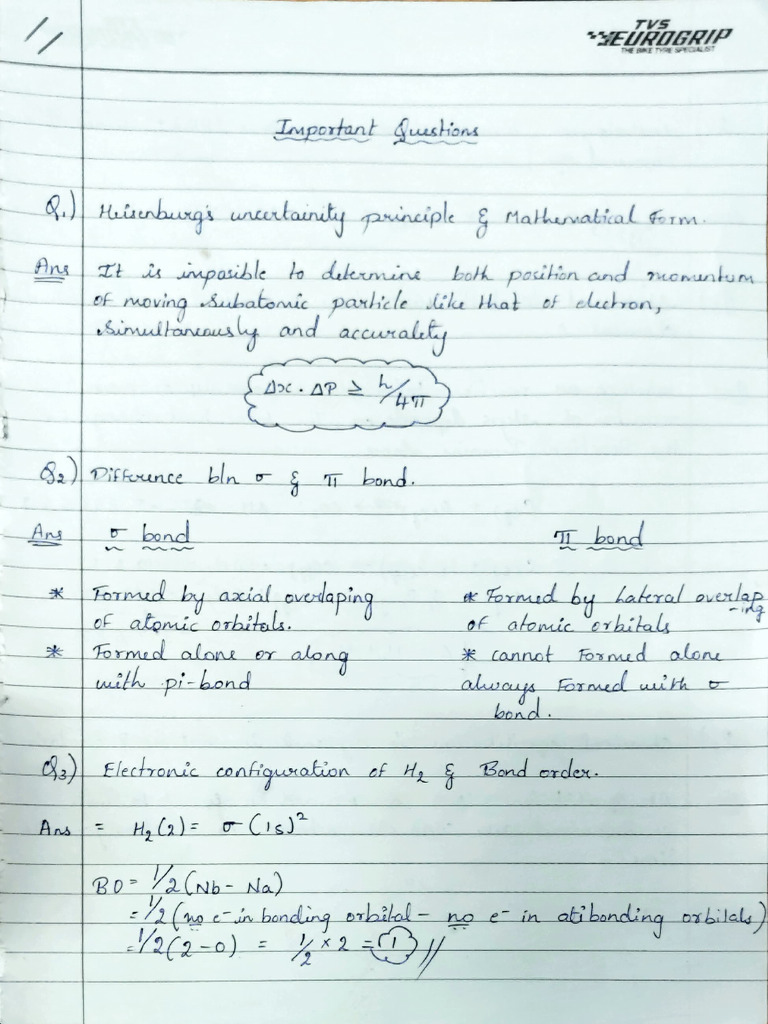 TVS
EUROGRIP
THE BIKE TYRE SPECIALIST
Important Questions
Q1) Heisenburg's uncertainity principle & Mathematical Form.
Ans It is imposible to determine both position and momentum
of moving subatomic particle like that of electron,
simultaneously and accuralety
Δx . ΔP ≥ h/4π
Q2) Difference b/n σ & π bond.
Ans σ bond π bond
* Formed by axial overlaping * Formed by Lateral overlap-ing
of atomic orbitals. of atomic orbitals
* Formed alone or along * cannot Formed alone
with pi-bond always Formed with σ
bond.
Q3) Electronic configuration of H₂ & Bond order.
Ans = H₂(2) = σ(1s)²
BO = 1/2(Nb - Na)
= 1/2(no e⁻ in bonding orbital - no e⁻ in atibonding orbitals)
= 1/2(2-0) = 1/2 × 2 = 1 //